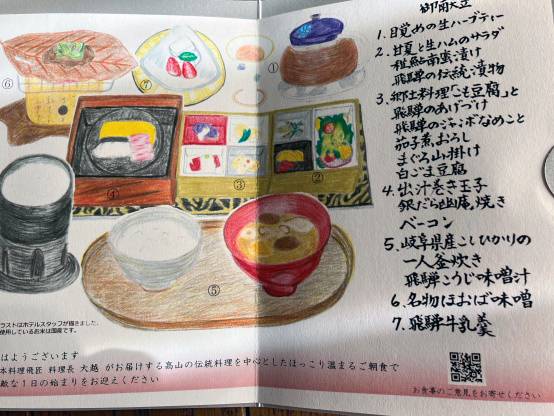 御献立
1.目覚めの生ハーブティー
2.甘夏と生ハムのサラダ
稚鮎南蛮漬け
飛騨の伝統漬物
3.郷土料理「こも豆腐」と
飛騨のあげづけ
飛騨のジャンボなめこと
茄子煮おろし
まぐろ山掛け
白ごま豆腐
4.出汁巻き玉子
銀だら幽庵焼き
ベーコン
5.岐阜県産こしひかりの
一人釜炊き
飛騨こうじ味噌汁
6.名物ほおば味噌
7.飛騨牛乳羹
⑥
⑦
①
④
③
②
⑤
ラストはホテルスタッフが描きました。
使用しているお米は国産です。
はようございます
本料理飛匠 料理長 大越 がお届けする高山の伝統料理を中心としたほっこり温まるご朝食で
敵な1日の始まりをお迎えください
お食事のご意見をお寄せください